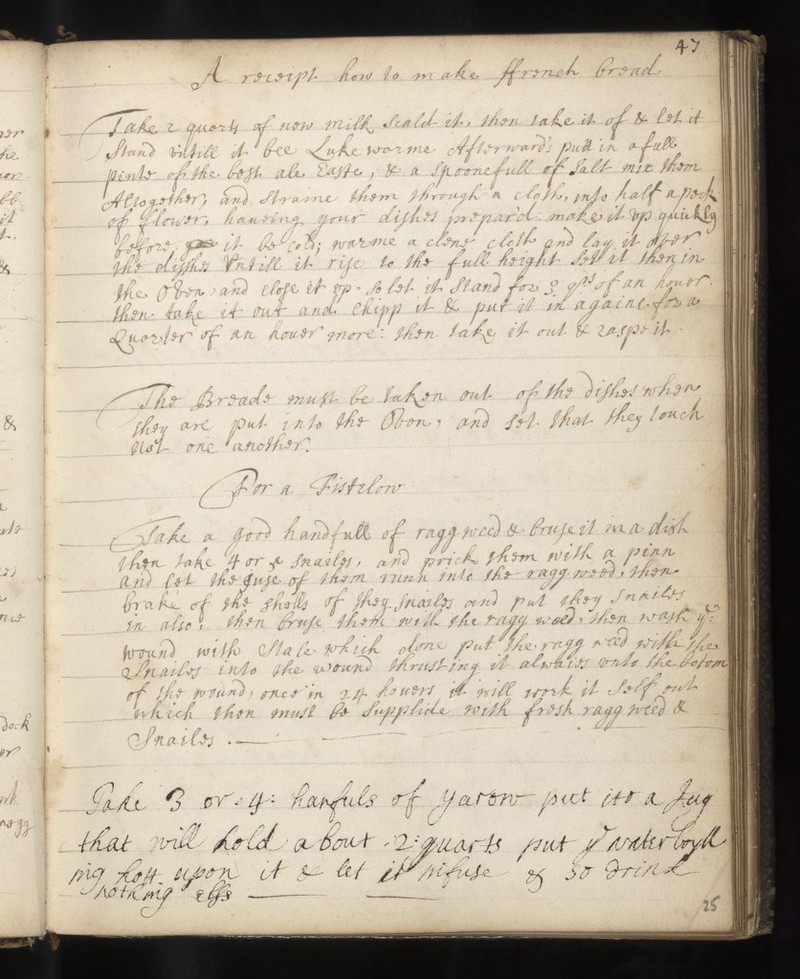 47
A receipt how to make ffrench bread
Take 2 quorts of new milk scald it, then take it of & let it
Stand vntill it bee Luke warme Afterwards putt in a full
pinte of the best ale Easte, & a spoonefull of Salt mix them
Altogether, and straine them through a cloth, into half a peck
of flower, haueing your dishes prepard: make it vp quickly
before it be cold; warme a clene cloth and lay it over
the dishes Vntill it rise to the full height set it then in
the Oven, and close it vp. so let it stand for 3 qrs of an houer.
then take it out and chipp it & put it in againe for a
Quorter of an houer more: then take it out & raspe it.
The Breade must be taken out of the dishes when
they are put into the Oven, and set that they touch
not one another.
For a Fistelow
Take a good handfull of ragg weed & bruse it in a dish
then take 4 or 5 snailes, and prick them with a pinn
and let the juse of them runn into the ragg weed, then
brake of the shells of they snailes and put they snailes
in also, then bruse them with the ragg weed, then wash ye:
wound with stale which done put the ragg weed with the
Snailes into the wound thrusting it alwaies vnto the botom
of the wound, once in 24 houers it will work it self out
which then must be supplide with fresh ragg weed &
Snailes.
Take 3 or: 4: hanfuls of yarow put itt a Jug
that will hold about :2: quarts put ye water boyll
ing hott upon it & let it infuse & so drink
nothing elss
25
&
dock